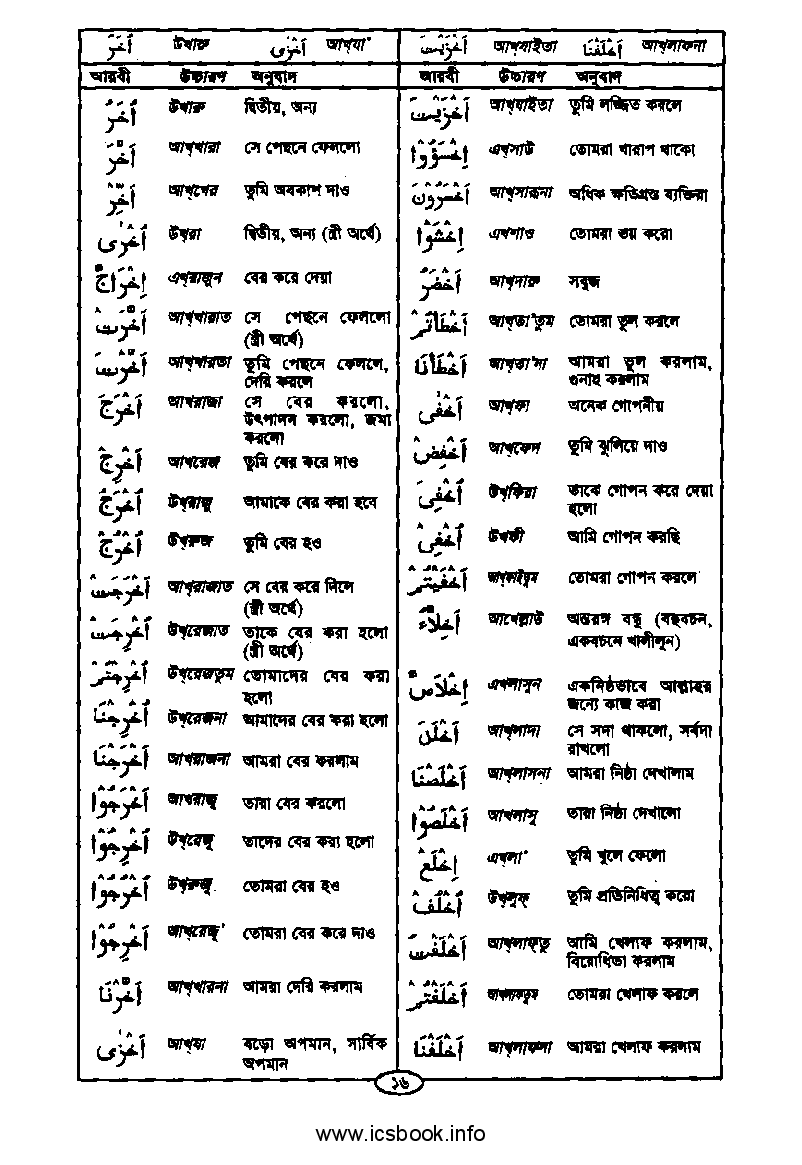 أُخَرُ উখারু أَخْزٰى আখ্‌যা'
আরবী উচ্চারণ অনুবাদ
أُخَرُ উখারু দ্বিতীয়, অন্য
أَخَّرَ আখ্‌খারা সে পেছনে ফেললো
أَخِّرْ আখ্‌খের তুমি অবকাশ দাও
أُخْرٰى উখ্‌রা দ্বিতীয়, অন্য (স্ত্রী অর্থে)
إِخْرَاجٌ এখ্‌রাজুন বের করে দেয়া
أَخَّرَتْ আখ্‌খারাত সে পেছনে ফেললো
(স্ত্রী অর্থে)
أَخَّرْتَ আখ্‌খারতা তুমি পেছনে ফেললে,
দেরি করলে
أَخْرَجَ আখরাজা সে বের করলো,
উৎপাদন করলো, জমা
করলো
أَخْرِجْ আখরেজ তুমি বের করে দাও
أُخْرَجُ উখ্‌রাজু আমাকে বের করা হবে
أُخْرُجْ উখ্‌রুজ তুমি বের হও
أَخْرَجَتْ আখ্‌রাজাত সে বের করে দিলে
(স্ত্রী অর্থে)
أُخْرِجَتْ উখ্‌রেজাত তাকে বের করা হলো
(স্ত্রী অর্থে)
أُخْرِجْتُمْ উখ্‌রেজতুম তোমাদের বের করা
হলো
أُخْرِجْنَا উখ্‌রেজনা আমাদের বের করা হলো
أَخْرَجْنَا আখ্‌রাজনা আমরা বের করলাম
أَخْرَجُوْا আখরাজু তারা বের করলো
أُخْرِجُوْا উখ্‌রেজু তাদের বের করা হলো
أُخْرُجُوْا উখ্‌রুজু তোমরা বের হও
أَخْرِجُوْا আখ্‌রেজু' তোমরা বের করে দাও
أَخَّرْنَا আখ্‌খারনা আমরা দেরি করলাম
أَخْزٰى আখ্‌যা বড়ো অপমান, সার্বিক
অপমান
أَخْزَيْتَ আখ্‌যাইতা أَخْلَفْنَا আখ্‌লাফনা
আরবী উচ্চারণ অনুবাদ
أَخْزَيْتَ আখ্‌যাইতা তুমি লজ্জিত করলে
إِخْسَؤُوْا এখ্‌সাউ তোমরা খারাপ থাকো
أَخْسَرُوْنَ আখ্‌সারূনা অধিক ক্ষতিগ্রস্ত ব্যক্তিরা
إِخْشَوْا এখশাও তোমরা ভয় করো
أَخْضَرُ আখ্‌দারু সবুজ
أَخْطَأْتُمْ আখ্‌তা'তুম তোমরা ভুল করলে
أَخْطَأْنَا আখ্‌তা'না আমরা ভুল করলাম,
গুনাহ করলাম
أَخْفٰى আখ্‌ফা অনেক গোপনীয়
أَخْفِضْ আখ্‌ফেদ তুমি ঝুলিয়ে দাও
أُخْفِىَ উখ্‌ফিয়া তাকে গোপন করে দেয়া
হলো
أُخْفِىْ উখফী আমি গোপন করছি
أَخْفَيْتُمْ আখফাইতুম তোমরা গোপন করলে
أَخِلَّاءُ আখেল্লাউ অন্তরঙ্গ বন্ধু (বহুবচন,
একবচনে খালীলুন)
إِخْلَاصٌ এখলাসুন একনিষ্ঠভাবে আল্লাহর
জন্যে কাজ করা
أَخْلَدَ আখ্‌লাদা সে সদা থাকলো, সর্বদা
রাখলো
أَخْلَصْنَا আখ্‌লাসনা আমরা নিষ্ঠা দেখালাম
أَخْلَصُوْا আখলাসূ তারা নিষ্ঠা দেখালো
إِخْلَعْ এখ্‌লা' তুমি খুলে ফেলো
أُخْلُفْ উখ্‌লুফ্‌ তুমি প্রতিনিধিত্ব করো
أَخْلَفْتُ আখ্‌লাফ্‌তু আমি খেলাফ করলাম,
বিরোধিতা করলাম
أَخْلَفْتُمْ আখলাফতুম তোমরা খেলাফ করলে
أَخْلَفْنَا আখ্‌লাফনা আমরা খেলাফ করলাম
১৬
www.icsbook.info